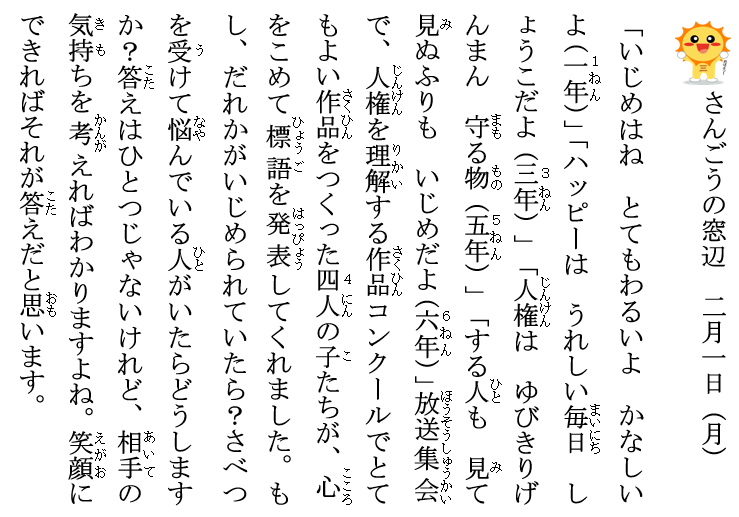 さんごうの窓辺　二月一日（月）
「いじめはね　とてもわるいよ　かなしい
よ（一年）」「ハッピーは　うれしい毎日　し
ょうこだよ（三年）」「人権は　ゆびきりげ
んまん　守る物（五年）」「する人も　見て
見ぬふりも　いじめだよ（六年）」放送集会
で、人権を理解する作品コンクールでとて
もよい作品をつくった四人の子たちが、心
をこめて標語を発表してくれました。も
し、だれかがいじめられていたら？さべつ
を受けて悩んでいる人がいたらどうします
か？答えはひとつじゃないけれど、相手の
気持ちを考えればわかりますよね。笑顔に
できればそれが答えだと思います。